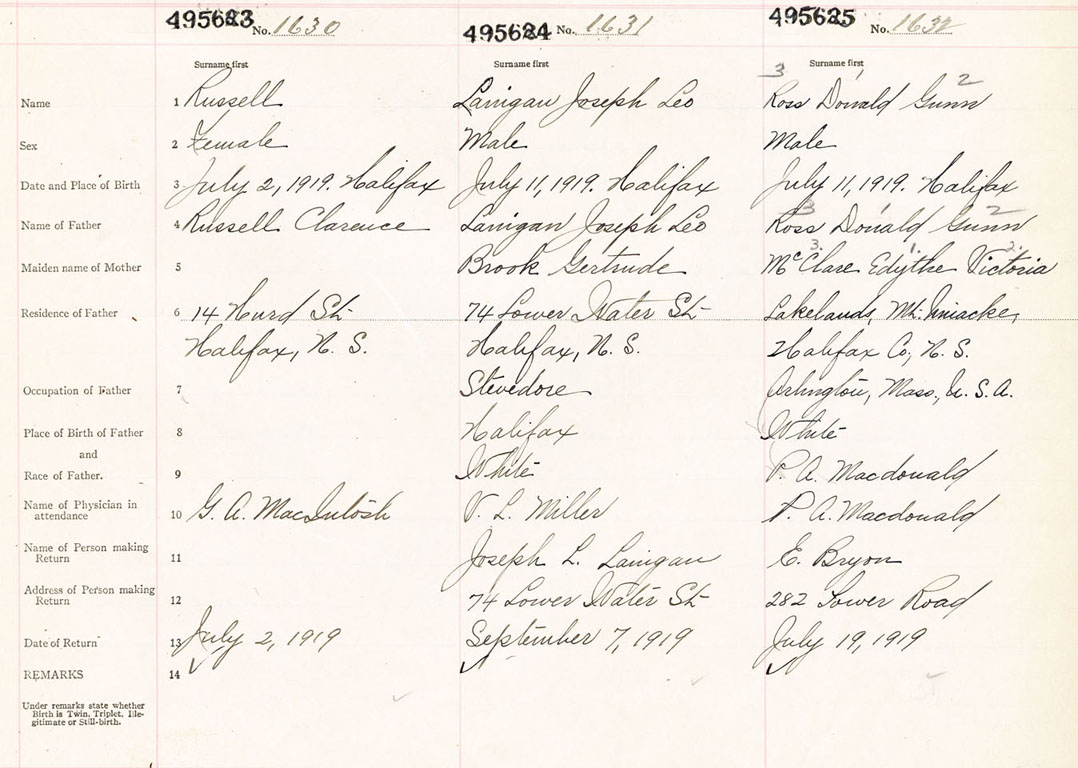 495623 No. 1630 495624 No. 1631 495625 No. 1632
Surname first Surname first Surname first
3 2
Name 1 Russell Lanigan Joseph Leo Ross Donald Gunn
Sex 2 Female Male Male
Date and Place of Birth 3 July 2, 1919. Halifax July 11, 1919. Halifax July 11, 1919. Halifax
3 2
Name of Father 4 Russell Clarence Lanigan Joseph Leo Ross Donald Gunn
3. 1. 2.
Maiden name of Mother 5 Brook Gertrude McClare Edythe Victoria
Residence of Father 6 14 Hurd St- 74 Lower Water St- Lakelands, Mt. Uniacke,
Halifax, N. S. Halifax, N. S. Halifax Co, N. S.
Occupation of Father 7 Stevedore Arlington, Mass., U. S. A.
Place of Birth of Father 8 Halifax White
and
Race of Father. 9 White P. A. Macdonald
Name of Physician in
attendance 10 G. A. MacIntosh V. L. Miller P. A. Macdonald
Name of Person making
Return 11 Joseph L. Lanigan E. Bryon
Address of Person making
Return 12 74 Lower Water St- 282 Tower Road
Date of Return 13 July 2, 1919 September 7, 1919 July 19, 1919
REMARKS 14
Under remarks state whether
Birth is Twin, Triplet, Ille-
gitimate or Still-birth.